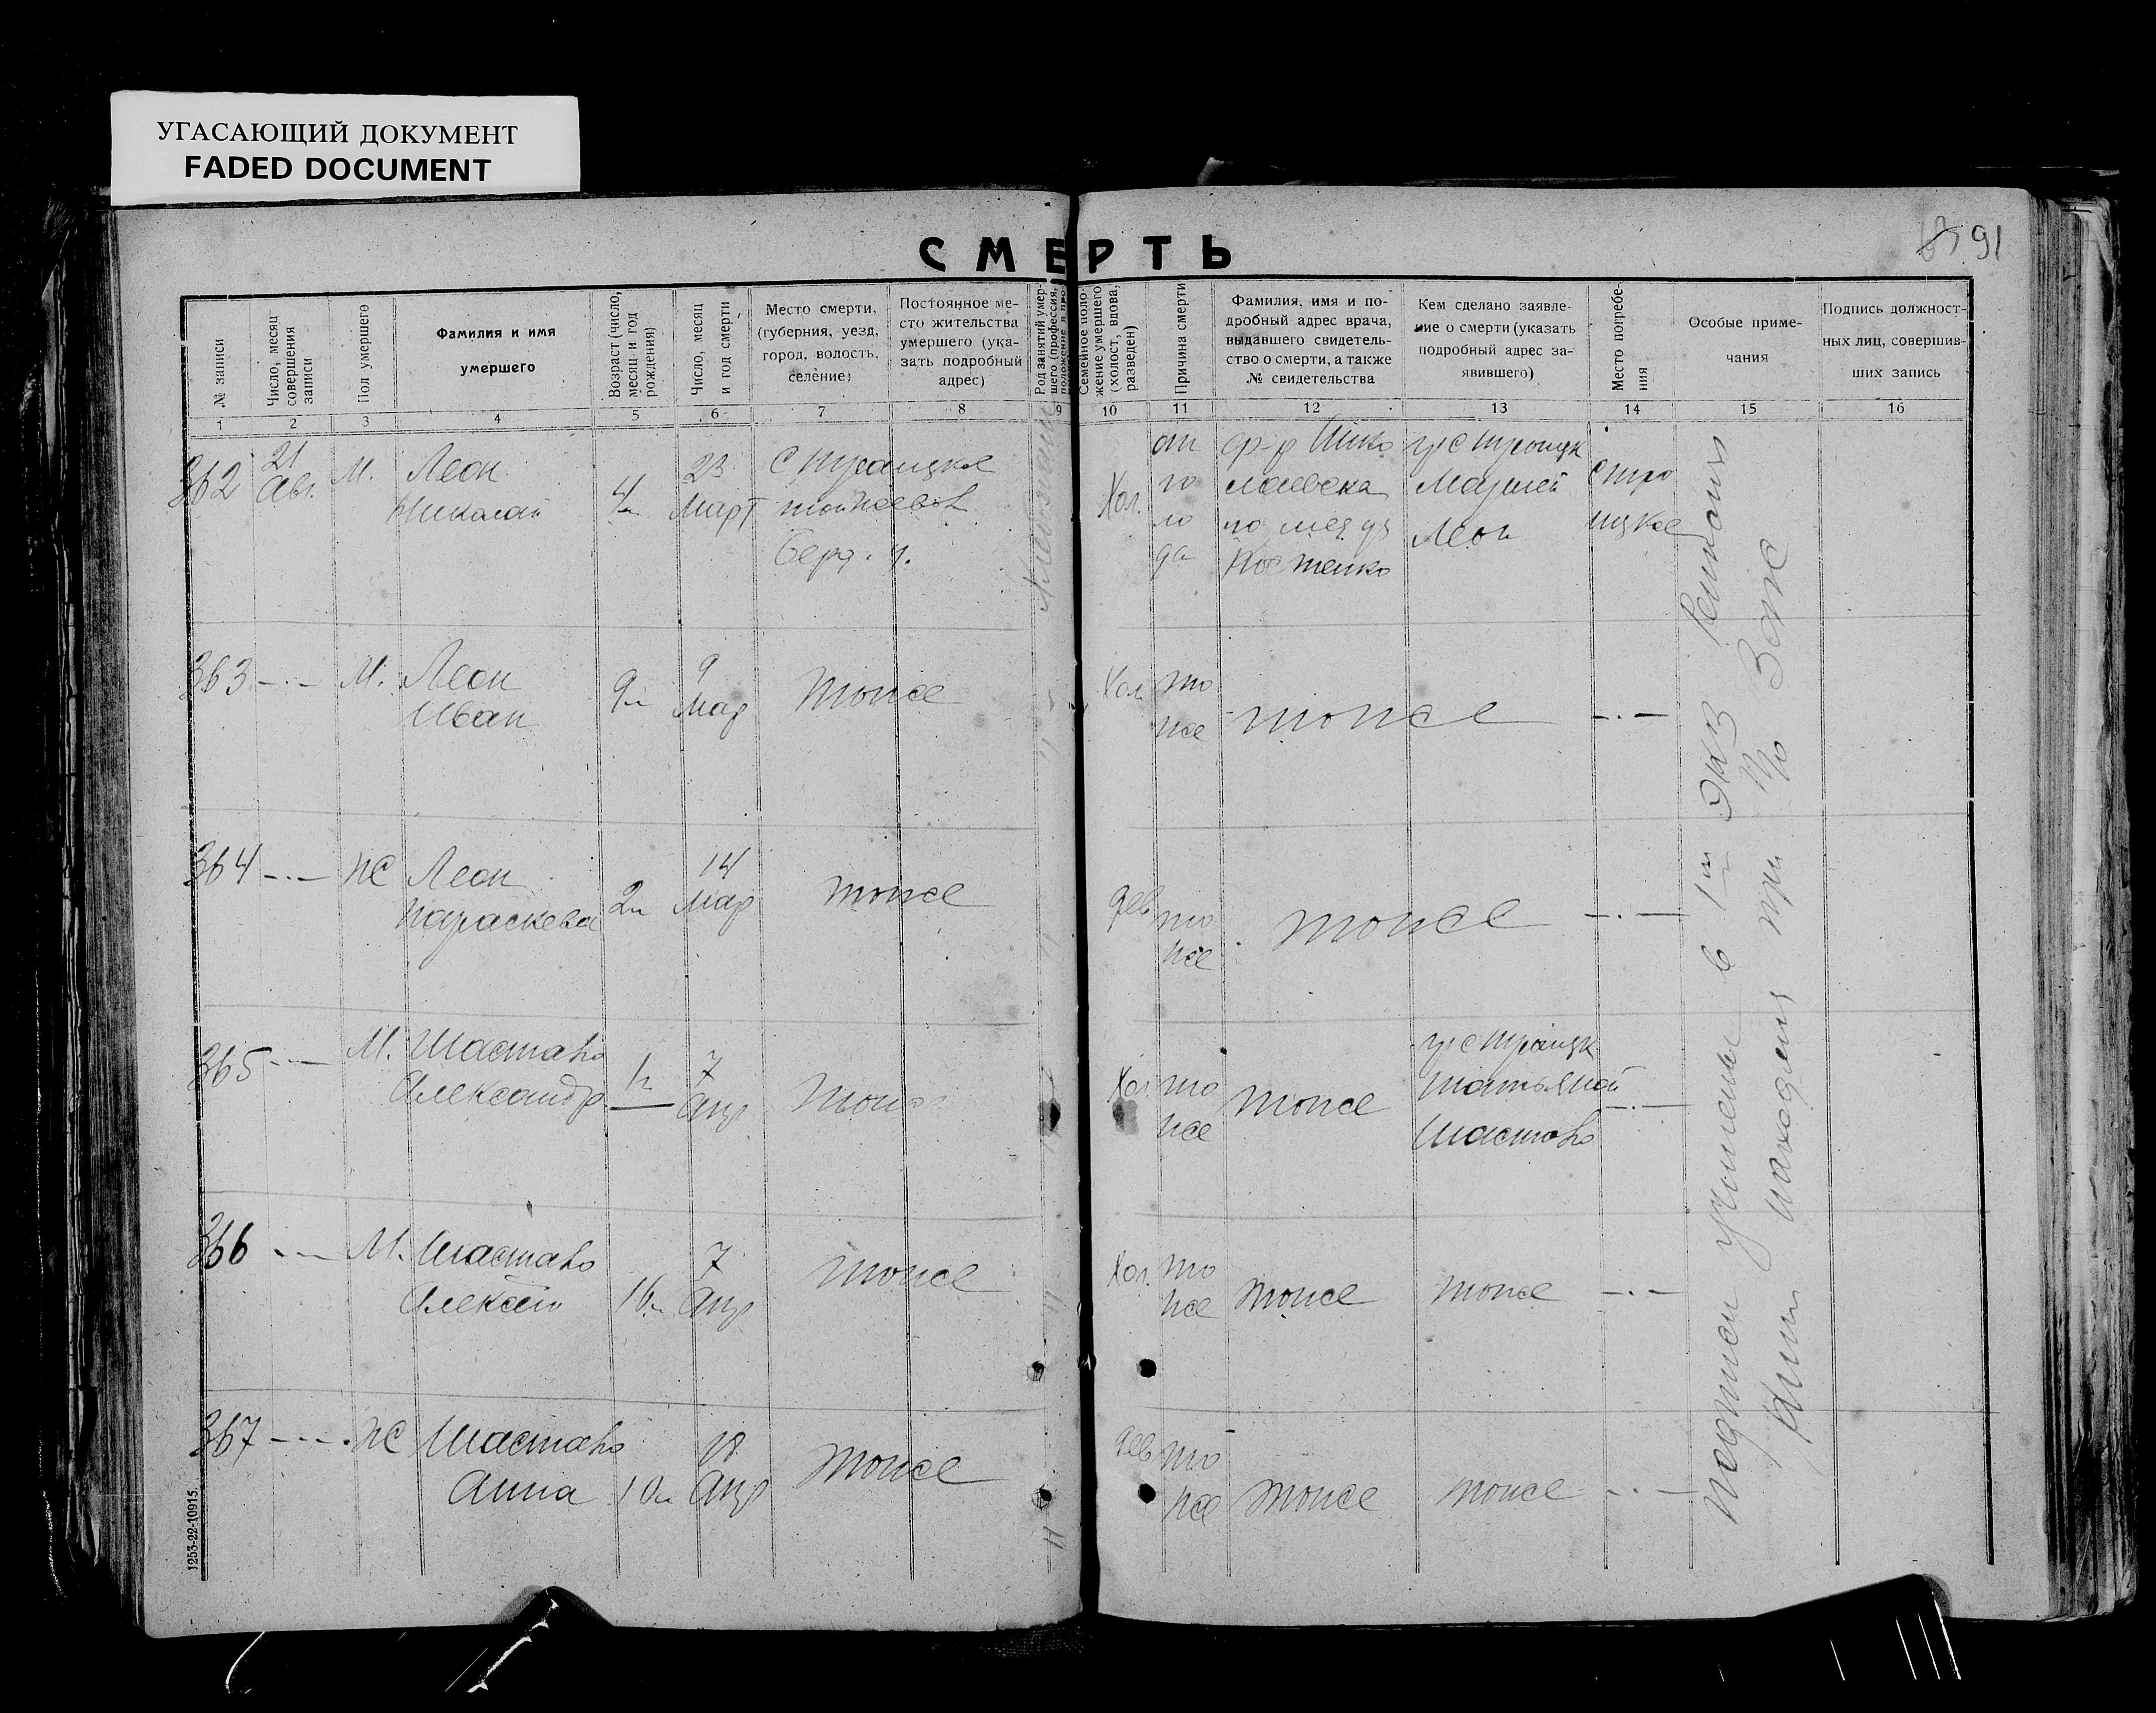 УГАСАЮЩИЙ ДОКУМЕНТ
FADED DOCUMENT
91
СМЕРТЬ
№ записи
Число, месяц
совершения
записи
Пол умершего
Фамилия и имя
умершего
Возраст (число,
месяц и год
рождения)
Число, месяц
и год смерти
Место смерти,
(губерния, уезд,
город, волость,
селение)
Постоянное ме-
сто жительства
умершего (ука-
зать подробный
адрес)
Род занятий умер-
шего (профессия,
Семейное поло-
жение умершего
(холост, вдова,
разведен)
Причина смерти
Фамилия, имя и по-
дробный адрес врача,
выдавшего свидетель-
ство о смерти, а также
№ свидетельства
Кем сделано заявле-
ние о смерти (указать
подробный адрес за-
явившего)
Место погребе-
ния
Особые приме-
чания
Подпись должност-
ных лиц, совершив-
ших запись
1 2 3 4 5 6 7 8 9 10 11 12 13 14 15 16
362
21
Авг.
М.
Леон
Николай
4л
23
Март
С Троицкое
Берд. у.
Хол.
от
го
ло
да
Костенко
гр с Троицк
Марией
Леон
с Тро
ицкое
363 -.-
М.
Леон
Иван
9л
9
Мар
тоже
Хол
то
же
тоже
-.-
364 -.-
Ж
Леон
Параскева
2л
14
Мар
тоже
дев
то
же
тоже
-.-
365 -.-
М.
Шастало
Александр
7
Апр
тоже
Хол
то
же
тоже
гр с Троицк
Татьяной
Шастало
-.-
366 -.-
М.
Шастало
Алексей
16л
7
Апр
тоже
Хол.
то
же
тоже
тоже
-.-
367 -.-
Ж
Шастало
Анна
10л
18
Апр
тоже
дев
то
же
тоже
тоже
-.-
Подписи учинены в 1м экз
при
Загс
1253-22-10915.